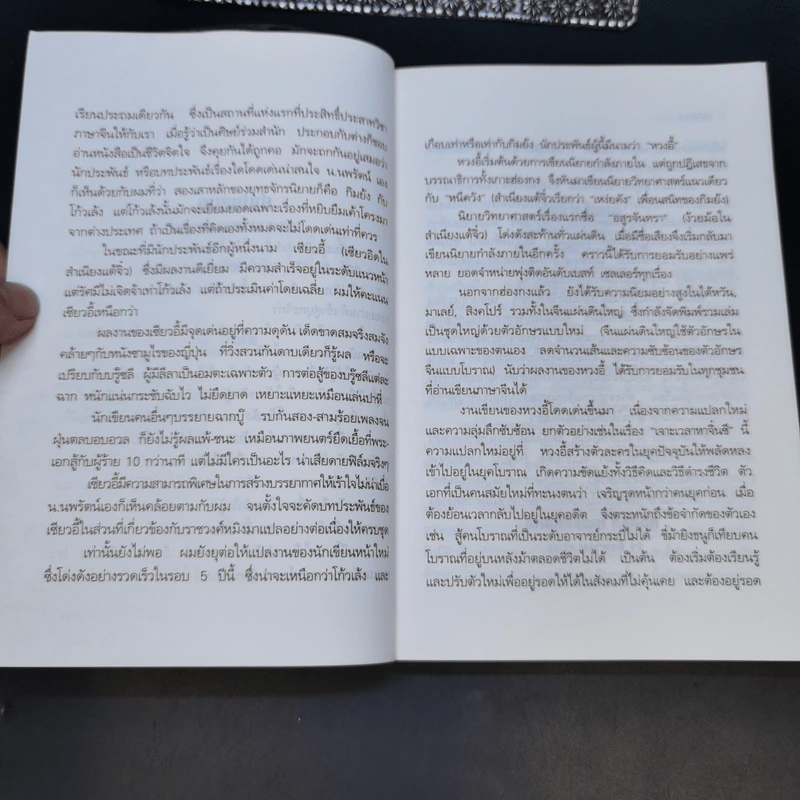 เรียนประถมเดียวกัน ซึ่งเป็นสถานที่แห่งแรกที่ประสิทธิ์ประสาทวิชา
ภาษาจีนให้กับเรา เมื่อรู้ว่าเป็นศิษย์ร่วมสำนัก ประกอบกับต่างก็ชอบ
อ่านหนังสือเป็นชีวิตจิตใจ จึงคุยกันได้ถูกคอ มักจะถกกันอยู่เสมอว่า
นักประพันธ์ หรือบทประพันธ์เรื่องใดโดดเด่นน่าสนใจ น.นพรัตน์ เอง
ก็เห็นด้วยกับผมที่ว่า สองเสาหลักของยุทธจักรนิยายก็คือ กิมย้ง กับ
โก้วเล้ง แต่โก้วเล้งนั้นมักจะเยี่ยมยอดเฉพาะเรื่องที่หยิบยืมเค้าโครงมา
จากต่างประเทศ ถ้าเป็นเรื่องที่คิดเองทั้งหมดจะไม่โดดเด่นเท่าที่ควร
ในขณะที่มีนักประพันธ์อีกผู้หนึ่งนาม เซียวอี้ (เซียวอิดใน
สำเนียงแต้จิ๋ว) ซึ่งมีผลงานดีเยี่ยม มีความสำเร็จอยู่ในระดับแนวหน้า
แต่รัศมีไม่เจิดจ้าเท่าโก้วเล้ง แต่ถ้าประเมินค่าโดยเฉลี่ย ผมให้คะแนน
เซียวอี้เหนือกว่า
ผลงานของเซียวอี้มีจุดเด่นอยู่ที่ความดุดัน เด็ดขาดสมจริงสมจัง
คล้ายๆกับหนังซามูไรของญี่ปุ่น ที่วิ่งสวนกันดาบเดียวก็รู้ผล หรือจะ
เปรียบกับบรู๊ซลี ผู้มีลีลาเป็นอมตะเฉพาะตัว การต่อสู้ของบรู๊ซลีแต่ละ
ฉาก หนักแน่นกระชับฉับไว ไม่ยืดยาด เหยาะแหยะเหมือนเล่นปาหี่
นักเขียนคนอื่นๆบรรยายฉากบู๊ รบกันสอง-สามร้อยเพลงจน
ฝุ่นตลบอบอวล ก็ยังไม่รู้ผลแพ้-ชนะ เหมือนภาพยนตร์ยืดเยื้อที่พระ-
เอกสู้กับผู้ร้าย 10 กว่านาที แต่ไม่มีใครเป็นอะไร น่าเสียดายฟิล์มจริงๆ
เซียวอี้มีความสามารถพิเศษในการสร้างบรรยากาศให้เร้าใจไม่น่าเบื่อ
น.นพรัตน์เองก็เห็นคล้อยตามกับผม จนตั้งใจจะคัดบทประพันธ์ของ
เซียวอี้ในส่วนที่เกี่ยวข้องกับราชวงศ์หมิงมาแปลอย่างต่อเนื่องให้ครบชุด
เท่านั้นยังไม่พอ ผมยังยุต่อให้แปลงานของนักเขียนหน้าใหม่
ซึ่งโด่งดังอย่างรวดเร็วในรอบ 5 ปีนี้ ซึ่งน่าจะเหนือกว่าโก้วเล้ง และ
เกือบเท่าหรือเท่ากับกิมย้ง นักประพันธ์ผู้นี้มีนามว่า "หวงอี้"
หวงอี้เริ่มต้นด้วยการเขียนนิยายกำลังภายใน แต่ถูกปฏิเสธจาก
บรรณาธิการทั้งเกาะฮ่องกง จึงหันมาเขียนนิยายวิทยาศาสตร์แนวเดียว
กับ "หนีควัง" (สำเนียงแต้จิ๋วเรียกว่า "เหง่ยคัง" เพื่อนสนิทของกิมย้ง)
นิยายวิทยาศาสตร์เรื่องแรกชื่อ "อสูรจันทรา" (ง้วยม้อใน
สำเนียงแต้จิ๋ว) โด่งดังสะท้านทั่วแผ่นดิน เมื่อมีชื่อเสียงจึงเริ่มกลับมา
เขียนนิยายกำลังภายในอีกครั้ง คราวนี้ได้รับการยอมรับอย่างแพร่
หลาย ยอดจำหน่ายพุ่งติดอันดับเบสท์ เซลเลอร์ทุกเรื่อง
นอกจากฮ่องกงแล้ว ยังได้รับความนิยมอย่างสูงในไต้หวัน,
มาเลย์, สิงคโปร์ รวมทั้งในจีนแผ่นดินใหญ่ ซึ่งกำลังจัดพิมพ์รวมเล่ม
เป็นชุดใหญ่ด้วยตัวอักษรแบบใหม่ (จีนแผ่นดินใหญ่ใช้ตัวอักษรใน
แบบเฉพาะของตนเอง ลดจำนวนเส้นและความซับซ้อนของตัวอักษร
จีนแบบโบราณ) นับว่าผลงานของหวงอี้ ได้รับการยอมรับในทุกชุมชน
ที่อ่านเขียนภาษาจีนได้
งานเขียนของหวงอี้โดดเด่นขึ้นมา เนื่องจากความแปลกใหม่
และความลุ่มลึกซับซ้อน ยกตัวอย่างเช่นในเรื่อง "เจาะเวลาหาจิ๋นซี" นี้
ความแปลกใหม่อยู่ที่ หวงอี้สร้างตัวละครในยุคปัจจุบันให้พลัดหลง
เข้าไปอยู่ในยุคโบราณ เกิดความขัดแย้งทั้งวิธีคิดและวิธีดำรงชีวิต ตัว
เอกที่เป็นคนสมัยใหม่ที่ทะนงตนว่า เจริญรุดหน้ากว่าคนยุคก่อน เมื่อ
ต้องย้อนเวลากลับไปอยู่ในยุคอดีต จึงตระหนักถึงข้อจำกัดของตัวเอง
เช่น สู้คนโบราณที่เป็นระดับอาจารย์กระบี่ไม่ได้ ขี่ม้ายิงธนูก็เทียบคน
โบราณที่อยู่บนหลังม้าตลอดชีวิตไม่ได้ เป็นต้น ต้องเริ่มต้องเรียนรู้
และปรับตัวใหม่เพื่ออยู่รอดให้ได้ในสังคมที่ไม่คุ้นเคย และต้องอยู่รอด